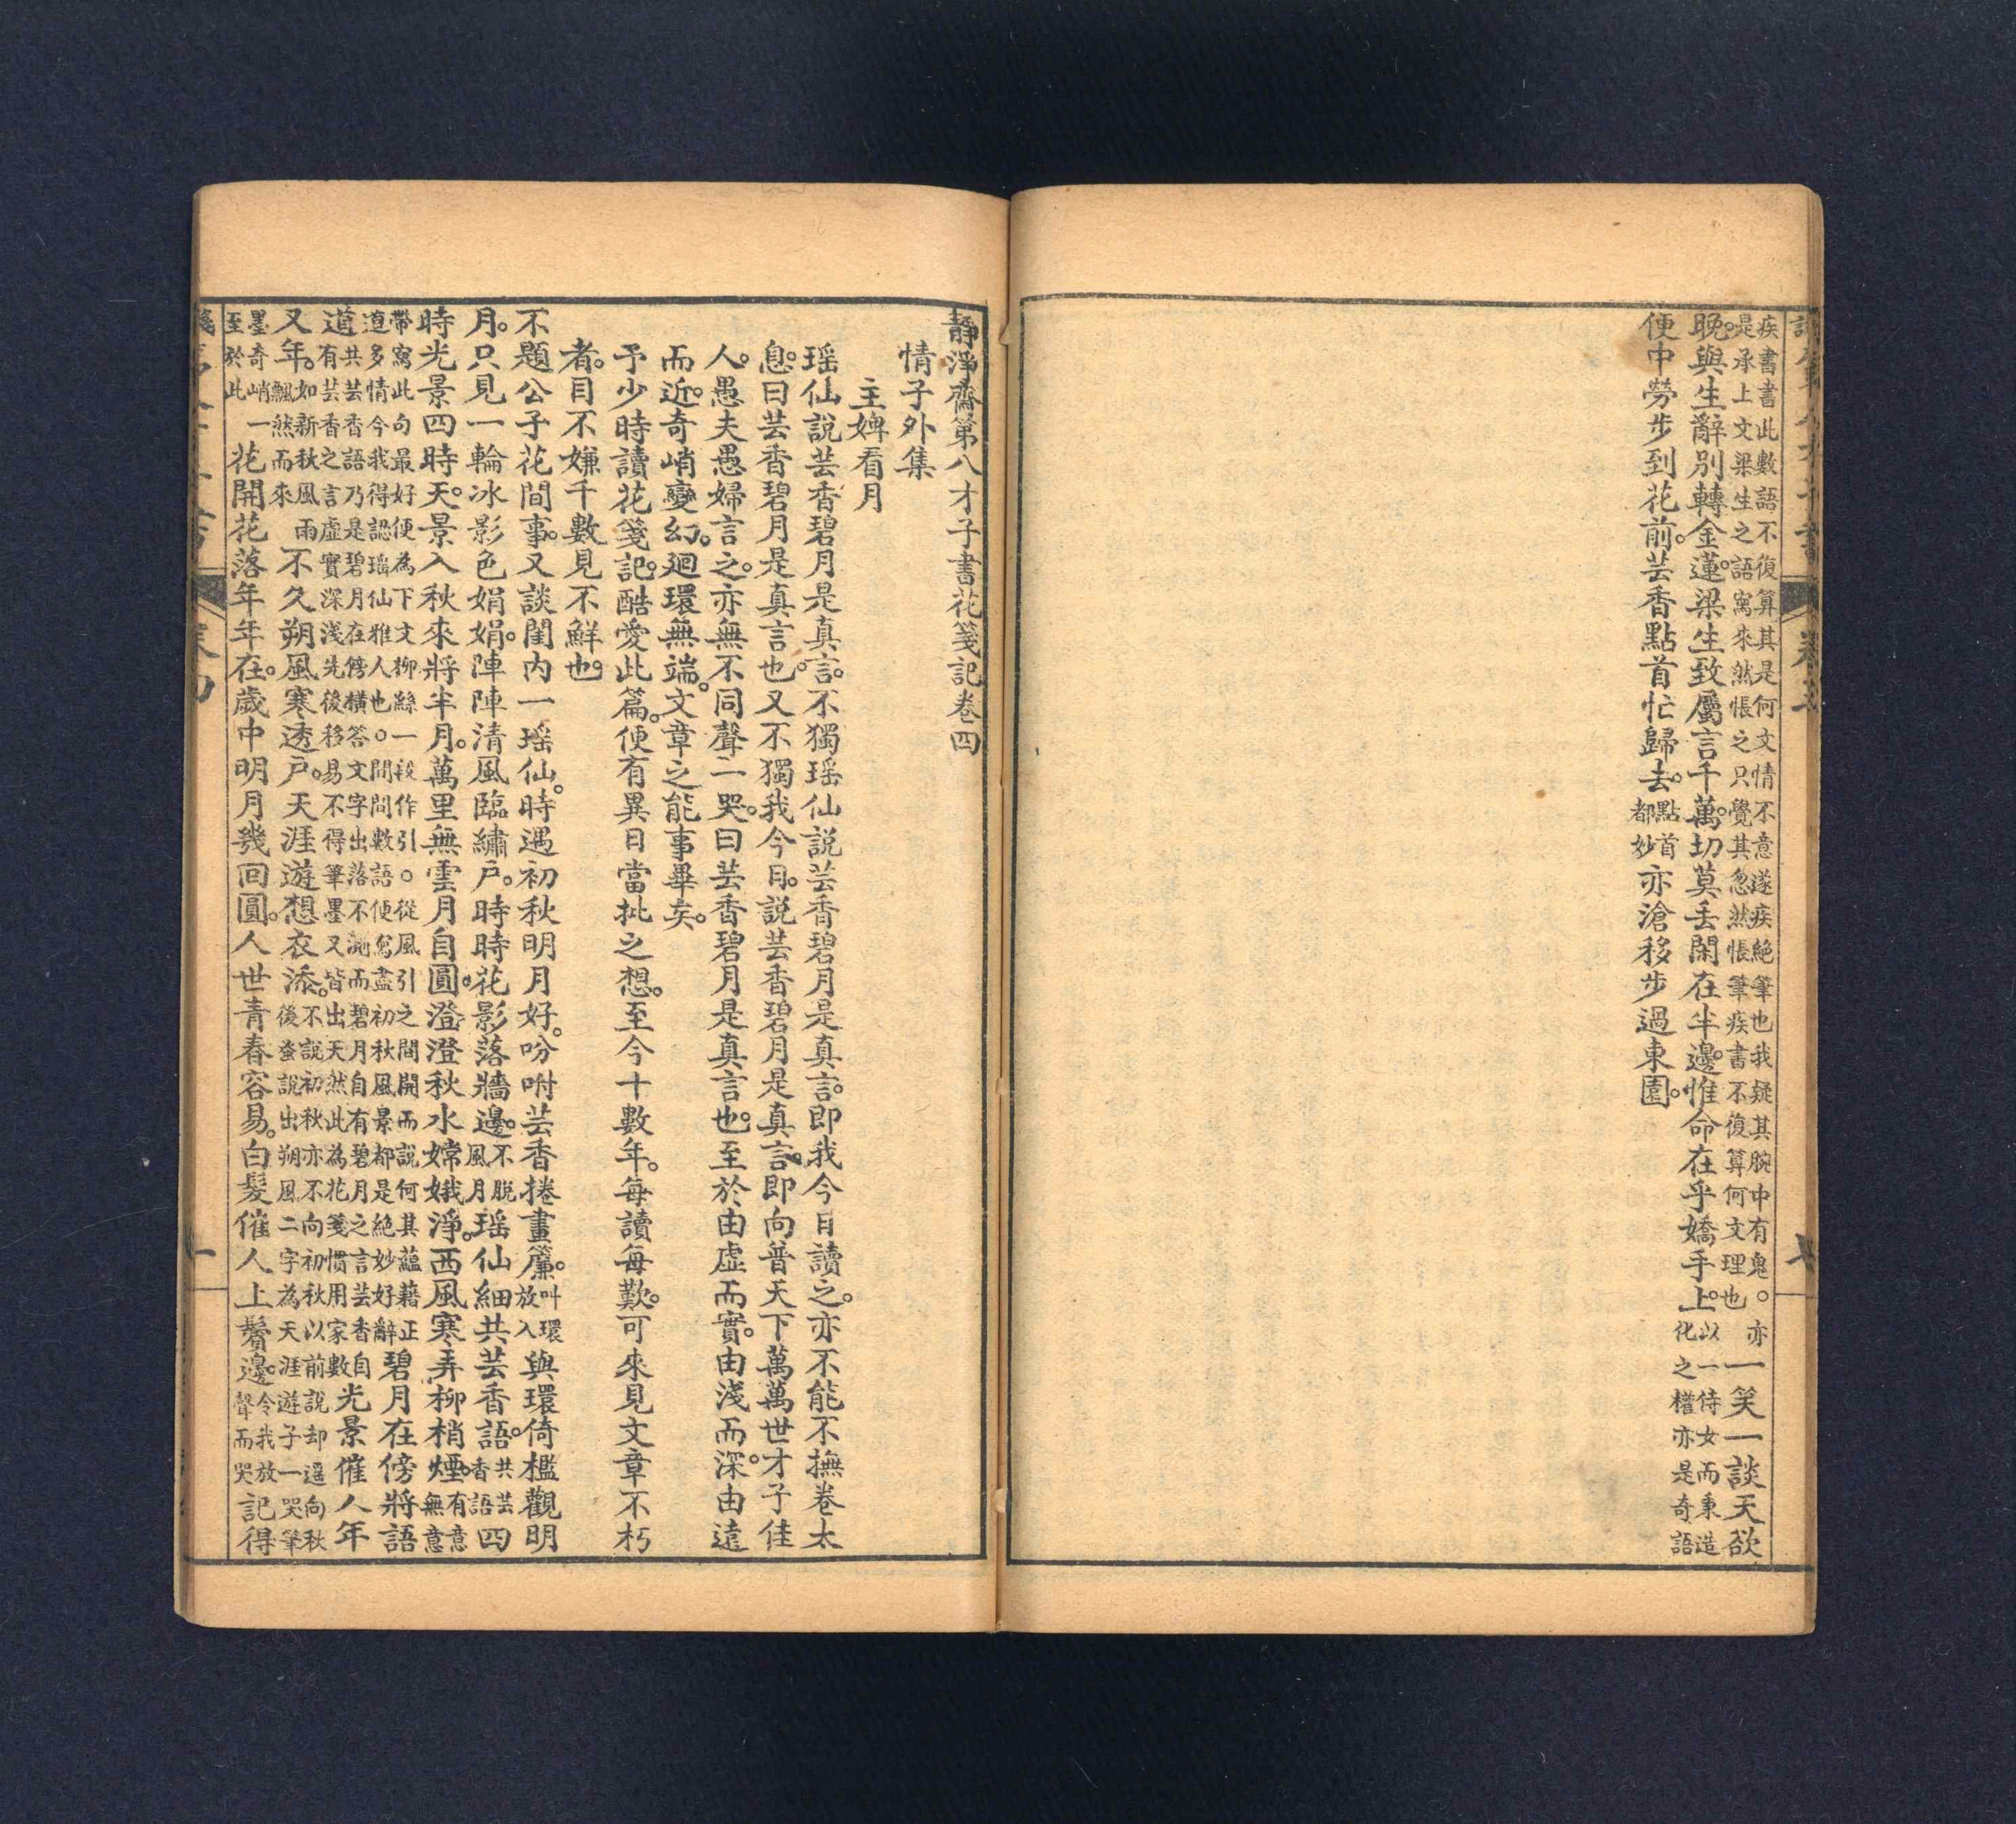 疾書書此數語不復算其是何文情不意遂疾絕筆也我疑其腕中有鬼。亦
是承上文梁生之語寫來然悵之只覺其忽然悵筆疾書不復算何文理也
一笑一談天欲
晚。與生辭別轉金蓮。梁生致屬言千萬。切莫丢閑在半邊。惟命在乎嬌手上。
以一侍女而秉造
化之權亦是奇語
便中勞步到花前。芸香點首忙歸去。
點首
都妙
亦滄移步過東園。
靜淨齋第八才子書花箋記卷四
情子外集
主婢看月
瑶仙説芸香碧月是真言。不獨瑶仙説芸香碧月是真言。即我今日讀之。亦不能不撫卷太
息。曰芸香碧月是真言也。又不獨我今日。説芸香碧月是真言。即向普天下萬萬世才子佳
人。愚夫愚婦言之。亦無不同聲二哭。曰芸香碧月是真言也。至於由虛而實。由淺而深。由遠
而近。奇峭變幻。廻環無端。文章之能事畢矣。
予少時讀花箋記。酷愛此篇。便有異日當批之想。至今十數年。每讀每歎。可來見文章不朽
者。目不嫌千數見不鮮也。
不題公子花間事。又談閨内一瑶仙。時遇初秋明月好。吩咐芸香捲畫簾。
叫環
放入
與環倚檻觀明
月。只見一輪冰影色娟娟。陣陣清風臨繡戶。時時花影落牆邊。
不脱
風月
瑶仙細共芸香語。
共芸
香語
四
時光景四時天。景入秋來將半月。萬里無雲月自圓。澄澄秋水嫦娥淨。西風寒弄柳梢煙。
有意
無意
帶寫此句最好便為下文柳絲一段作引。從風引之間開而説何其蘊藉正
道多情今我得認瑶仙雅人也。間間數語便寫盡初秋風景都是絕妙好辭
碧月在傍將語
道
共芸香語乃是碧月在傍橫答文字出落不測而碧月自有碧月之言芸香自
有芸香之言虛實深淺先後移易不得筆墨又皆出天然此為花箋慣用家數
光景催人年
又年。
如新秋風雨
飄然而來
不久朔風寒透戶。天涯遊想衣添。
不説初秋亦不向初秋以前説却遥向秋
後蚤説出朔風二字為天涯遊子一哭筆
墨奇峭一
至於此
花開花落年年在。歲中明月幾回圓。人世青春容易。白髮催人上鬢邊。
令我放
聲而哭
記得